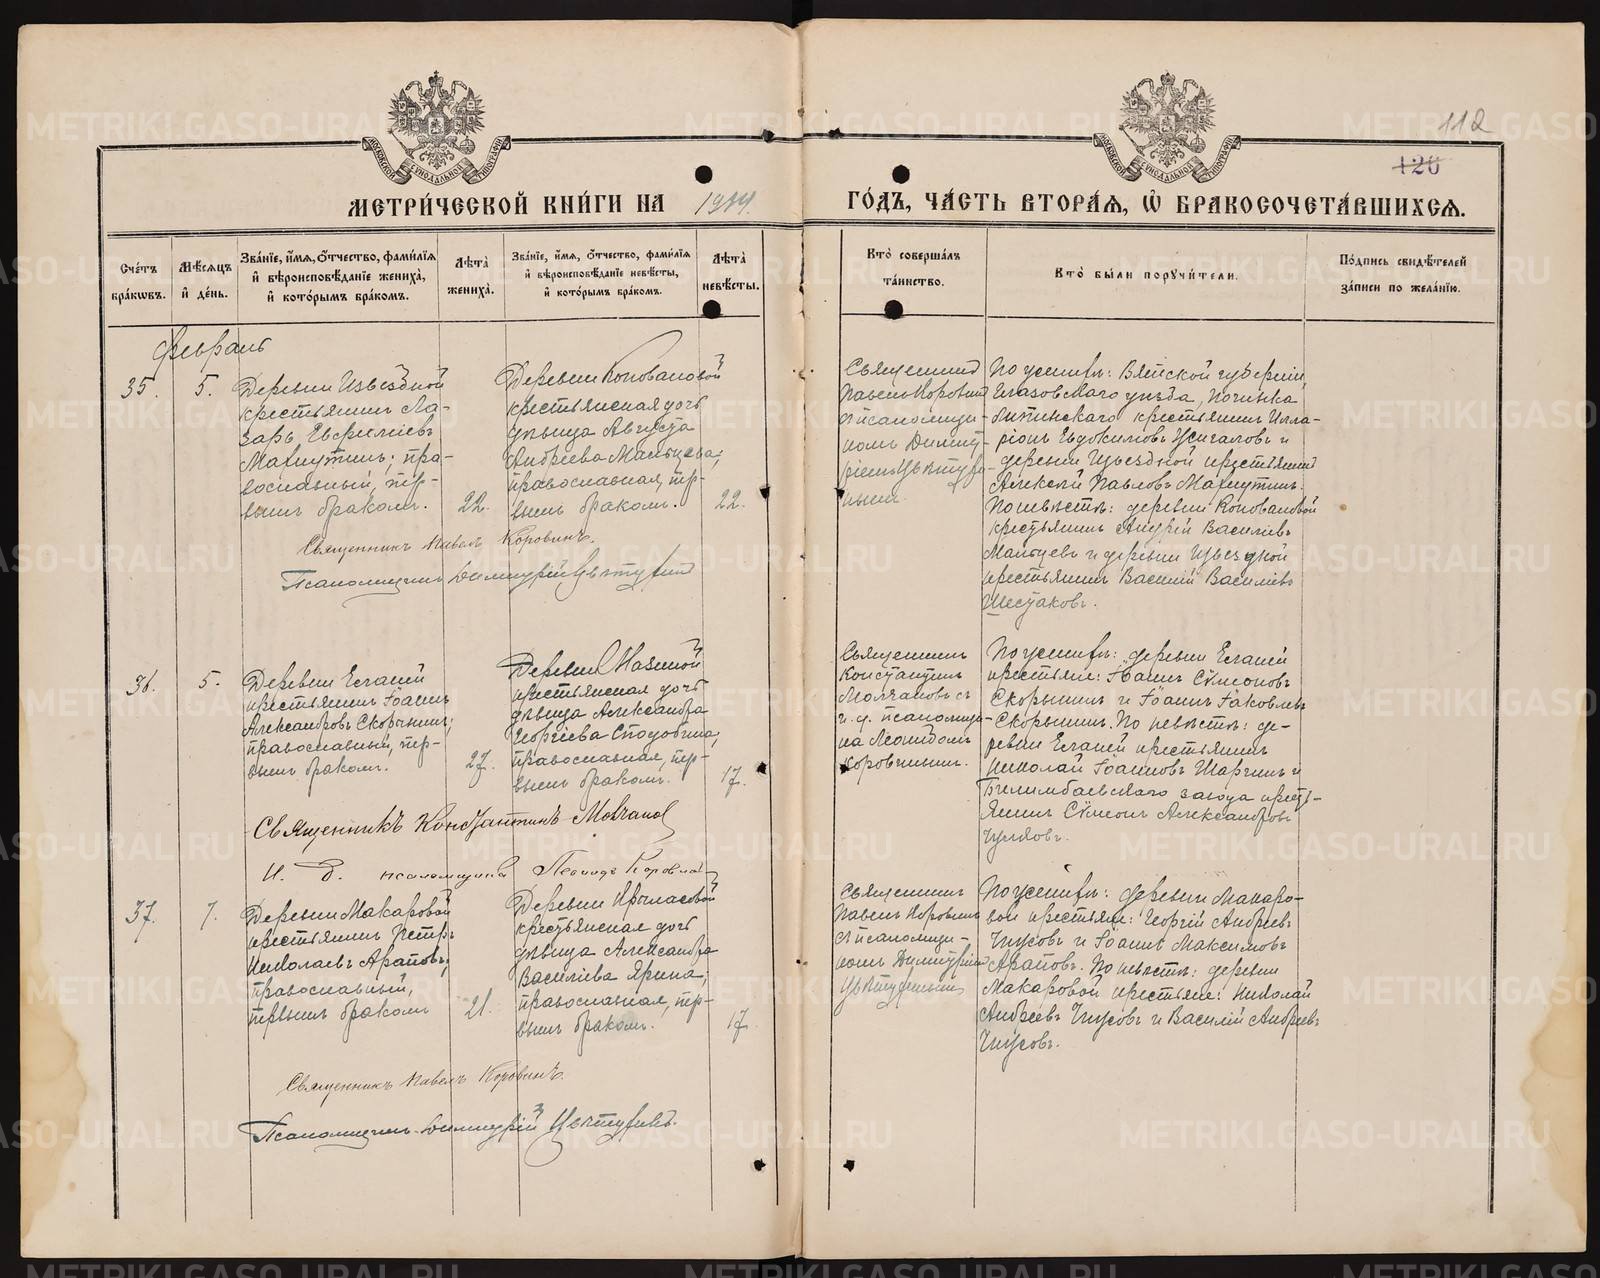 112
120
МЕТРИ́ЧЕСКОЙ КНИ́ГИ НА 1914. ГО́ДЪ, ЧА́СТЬ ВТОРА́Я, Ѡ БРАКОСОЧЕТА́ВШИХСЯ.
Сче́тъ бра́кѡвъ.
Мѣ́сяцъ и де́нь.
Зва́нїе, и́мя, ѻ́тчество, фами́лїя и вѣроисповѣ́данїе жениха̀, и кото́рымъ бра́комъ.
Лѣ́та жениха̀.
Зва́нїе, и́мя, ѻ́тчество, фами́лїя и вѣроисповѣ́данїе невѣ́сты, и кото́рымъ бра́комъ.
Лѣ́та невѣ́сты.
Кто̀ соверша́лъ та́инство.
Кто̀ бы́ли поручи́тели.
По́дпись свидѣ́телей за́писи по жела́нїю.
Февраль
35.
5.
Деревни Извѣздной
крестьянинъ Ла-
зарь Евфиміевъ
Махнутинъ; пра-
вославный, пер-
вымъ бракомъ.
22.
Деревни Коноваловой
крестьянская дочь
дѣвица Августа
Андреева Мальцева;
православная, пер-
вымъ бракомъ.
22.
Священникъ
Павелъ Коровинъ
съ псаломщи-
комъ Димит-
ріемъ Цвѣтух-
инымъ.
По женихѣ: Вятской губерніи,
Глазовскаго уѣзда, починка
крестьянинъ Илла-
ріонъ Евдокимовъ и
деревни Извѣздной крестьянинъ
Алексѣй Павловъ Махнутинъ.
По невѣстѣ: деревни Коноваловой
крестьянинъ Андрей Василіевъ
Мальцевъ и деревни Извѣздной
крестьянинъ Василій Василіевъ
Шестаковъ.
Священникъ Павелъ Коровинъ.
Псаломщикъ Димитрій Цвѣтухинъ
36.
5.
Деревни Еланей
крестьянинъ Іоаннъ
Александровъ Скорынинъ;
православный, пер-
вымъ бракомъ.
27.
Деревни
крестьянская дочь
дѣвица Александра
Георгіева
православная, пер-
вымъ бракомъ.
17.
Священникъ
Константинъ
Молчановъ съ
и. д. псаломщи-
ка Леонидомъ
Коровинымъ.
По женихѣ: деревни Еланей
крестьяне: Іоаннъ Сѵмеоновъ
Скорынинъ и Іоаннъ Іаковлевъ
Скорынинъ. По невѣстѣ: де-
ревни Еланей крестьянинъ
Николай Іоанновъ Шаргинъ и
Билимбаевскаго завода кресть-
янинъ Сѵмеонъ Александровъ
Священникъ Константинъ Молчановъ
И. д. псаломщика Леонидъ Коровинъ
37.
7.
Деревни Макаровой
крестьянинъ Петръ
Николаевъ Араповъ;
православный,
первымъ бракомъ
21.
Деревни
крестьянская дочь
дѣвица Александра
Василіева Ярина;
православная, пер-
вымъ бракомъ.
17.
Священникъ
Павелъ Коровинъ
съ псаломщи-
комъ Димитріемъ
Цвѣтухинымъ
По женихѣ: деревни Макаро-
вой крестьяне: Георгій Андреевъ
Чусовъ и Іоаннъ Максимовъ
Араповъ. По невѣстѣ: деревни
Макаровой крестьяне: Николай
Андреевъ Чусовъ и Василій Андреевъ
Чусовъ.
Священникъ Павелъ Коровинъ.
Псаломщикъ Димитрій Цвѣтухинъ.
METRIKI.GASO-URAL.RU